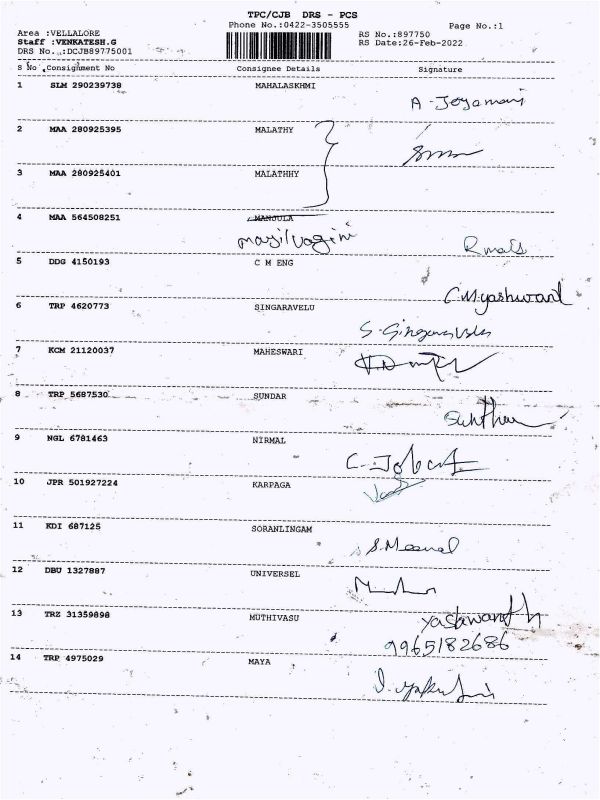 TPC/CJB DRS - PCS
Phone No.:0422-3505555
Page No.:1
Area :VELLALORE
Staff :VENKATESH.G
DRS No..:DCJB89775001
RS No.:897750
RS Date:26-Feb-2022
S No Consignment No Consignee Details Signature
1 SLM 290239738 MAHALASKHMI
A - Jeyamani
2 MAA 280925395 MALATHY
3 MAA 280925401 MALATHHY
4 MAA 564508251 MANJULA
5 DDG 4150193 C M ENG
C.M.yashwant
6 TRP 4620773 SINGARAVELU
7 KCM 21120037 MAHESWARI
8 TRP 5687530 SUNDAR
9 NGL 6781463 NIRMAL
10 JPR 501927224 KARPAGA
11 KDI 687125 SORANLINGAM
S.Meenal
12 DBU 1327887 UNIVERSEL
13 TRZ 31359898 MUTHIVASU
yashwanth
9965182686
14 TRP 4975029 MAYA